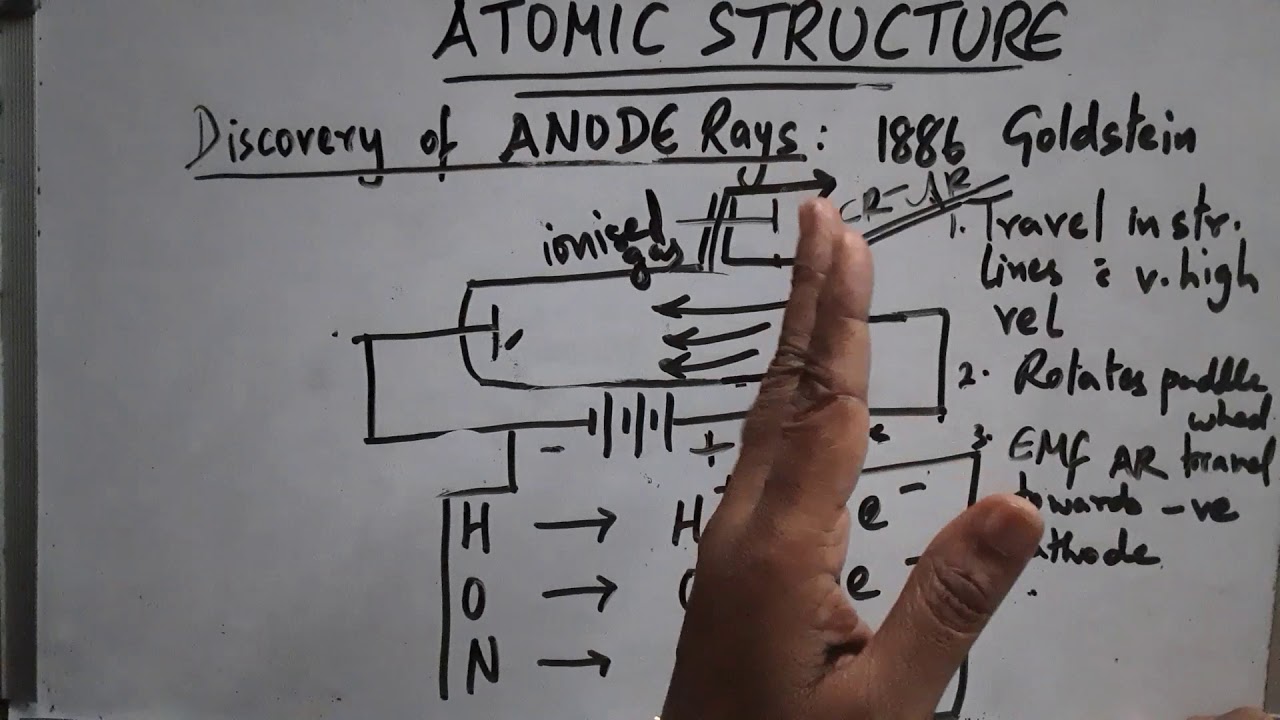 ATOMIC STRUCTURE
Discovery of ANODE Rays: 1886 Goldstein
ionised
gas
CR-AR
1. Travel in str.
lines : v. high
vel
2. Rotates paddle
wheel
3. EMf AR travel
towards -ve
- +
H → H e⁻
O → e⁻
N →